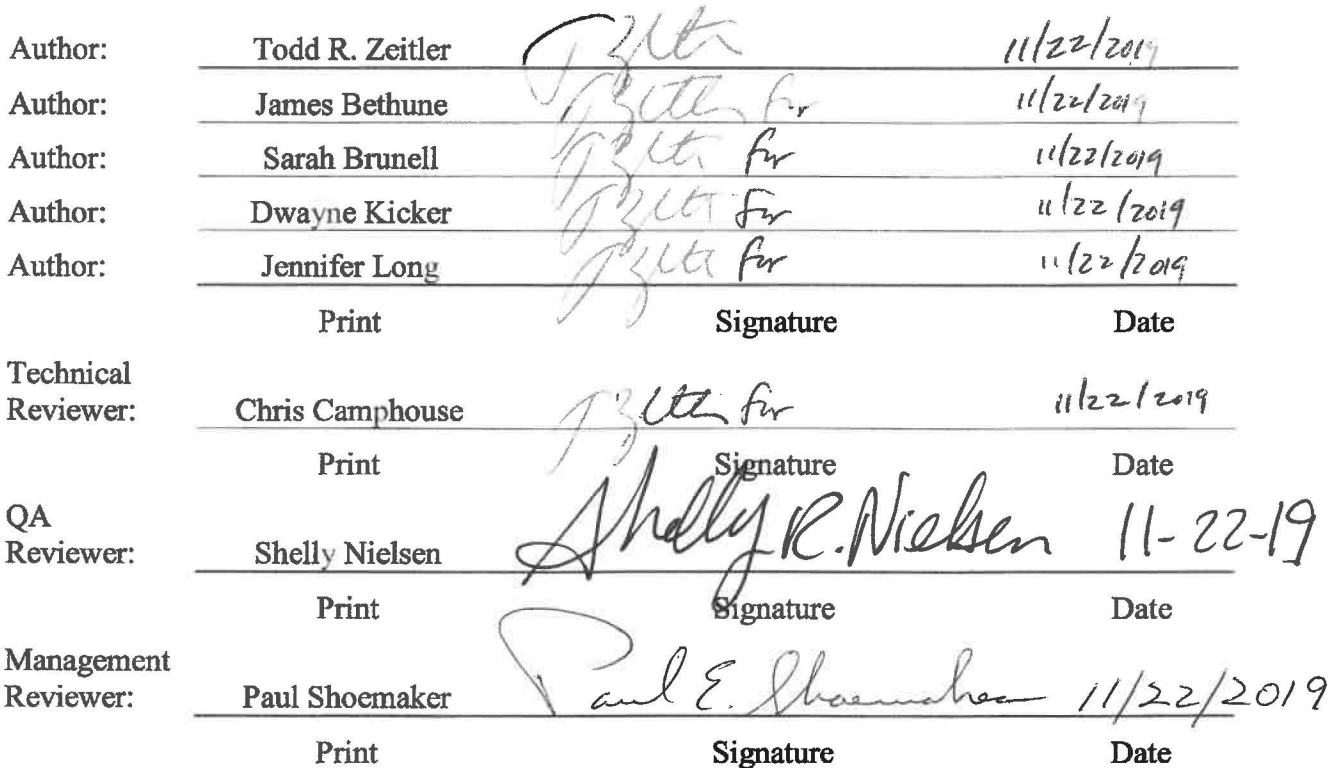 Author: Todd R. Zeitler 11/22/2019
Author: James Bethune for 11/22/2019
Author: Sarah Brunell for 11/22/2019
Author: Dwayne Kicker for 11/22/2019
Author: Jennifer Long for 11/22/2019
Print Signature Date
Technical
Reviewer: Chris Camphouse for 11/22/2019
Print Signature Date
QA
Reviewer: Shelly Nielsen Shelly R. Nielsen 11-22-19
Print Signature Date
Management
Reviewer: Paul Shoemaker Paul E. Shoemaker 11/22/2019
Print Signature Date